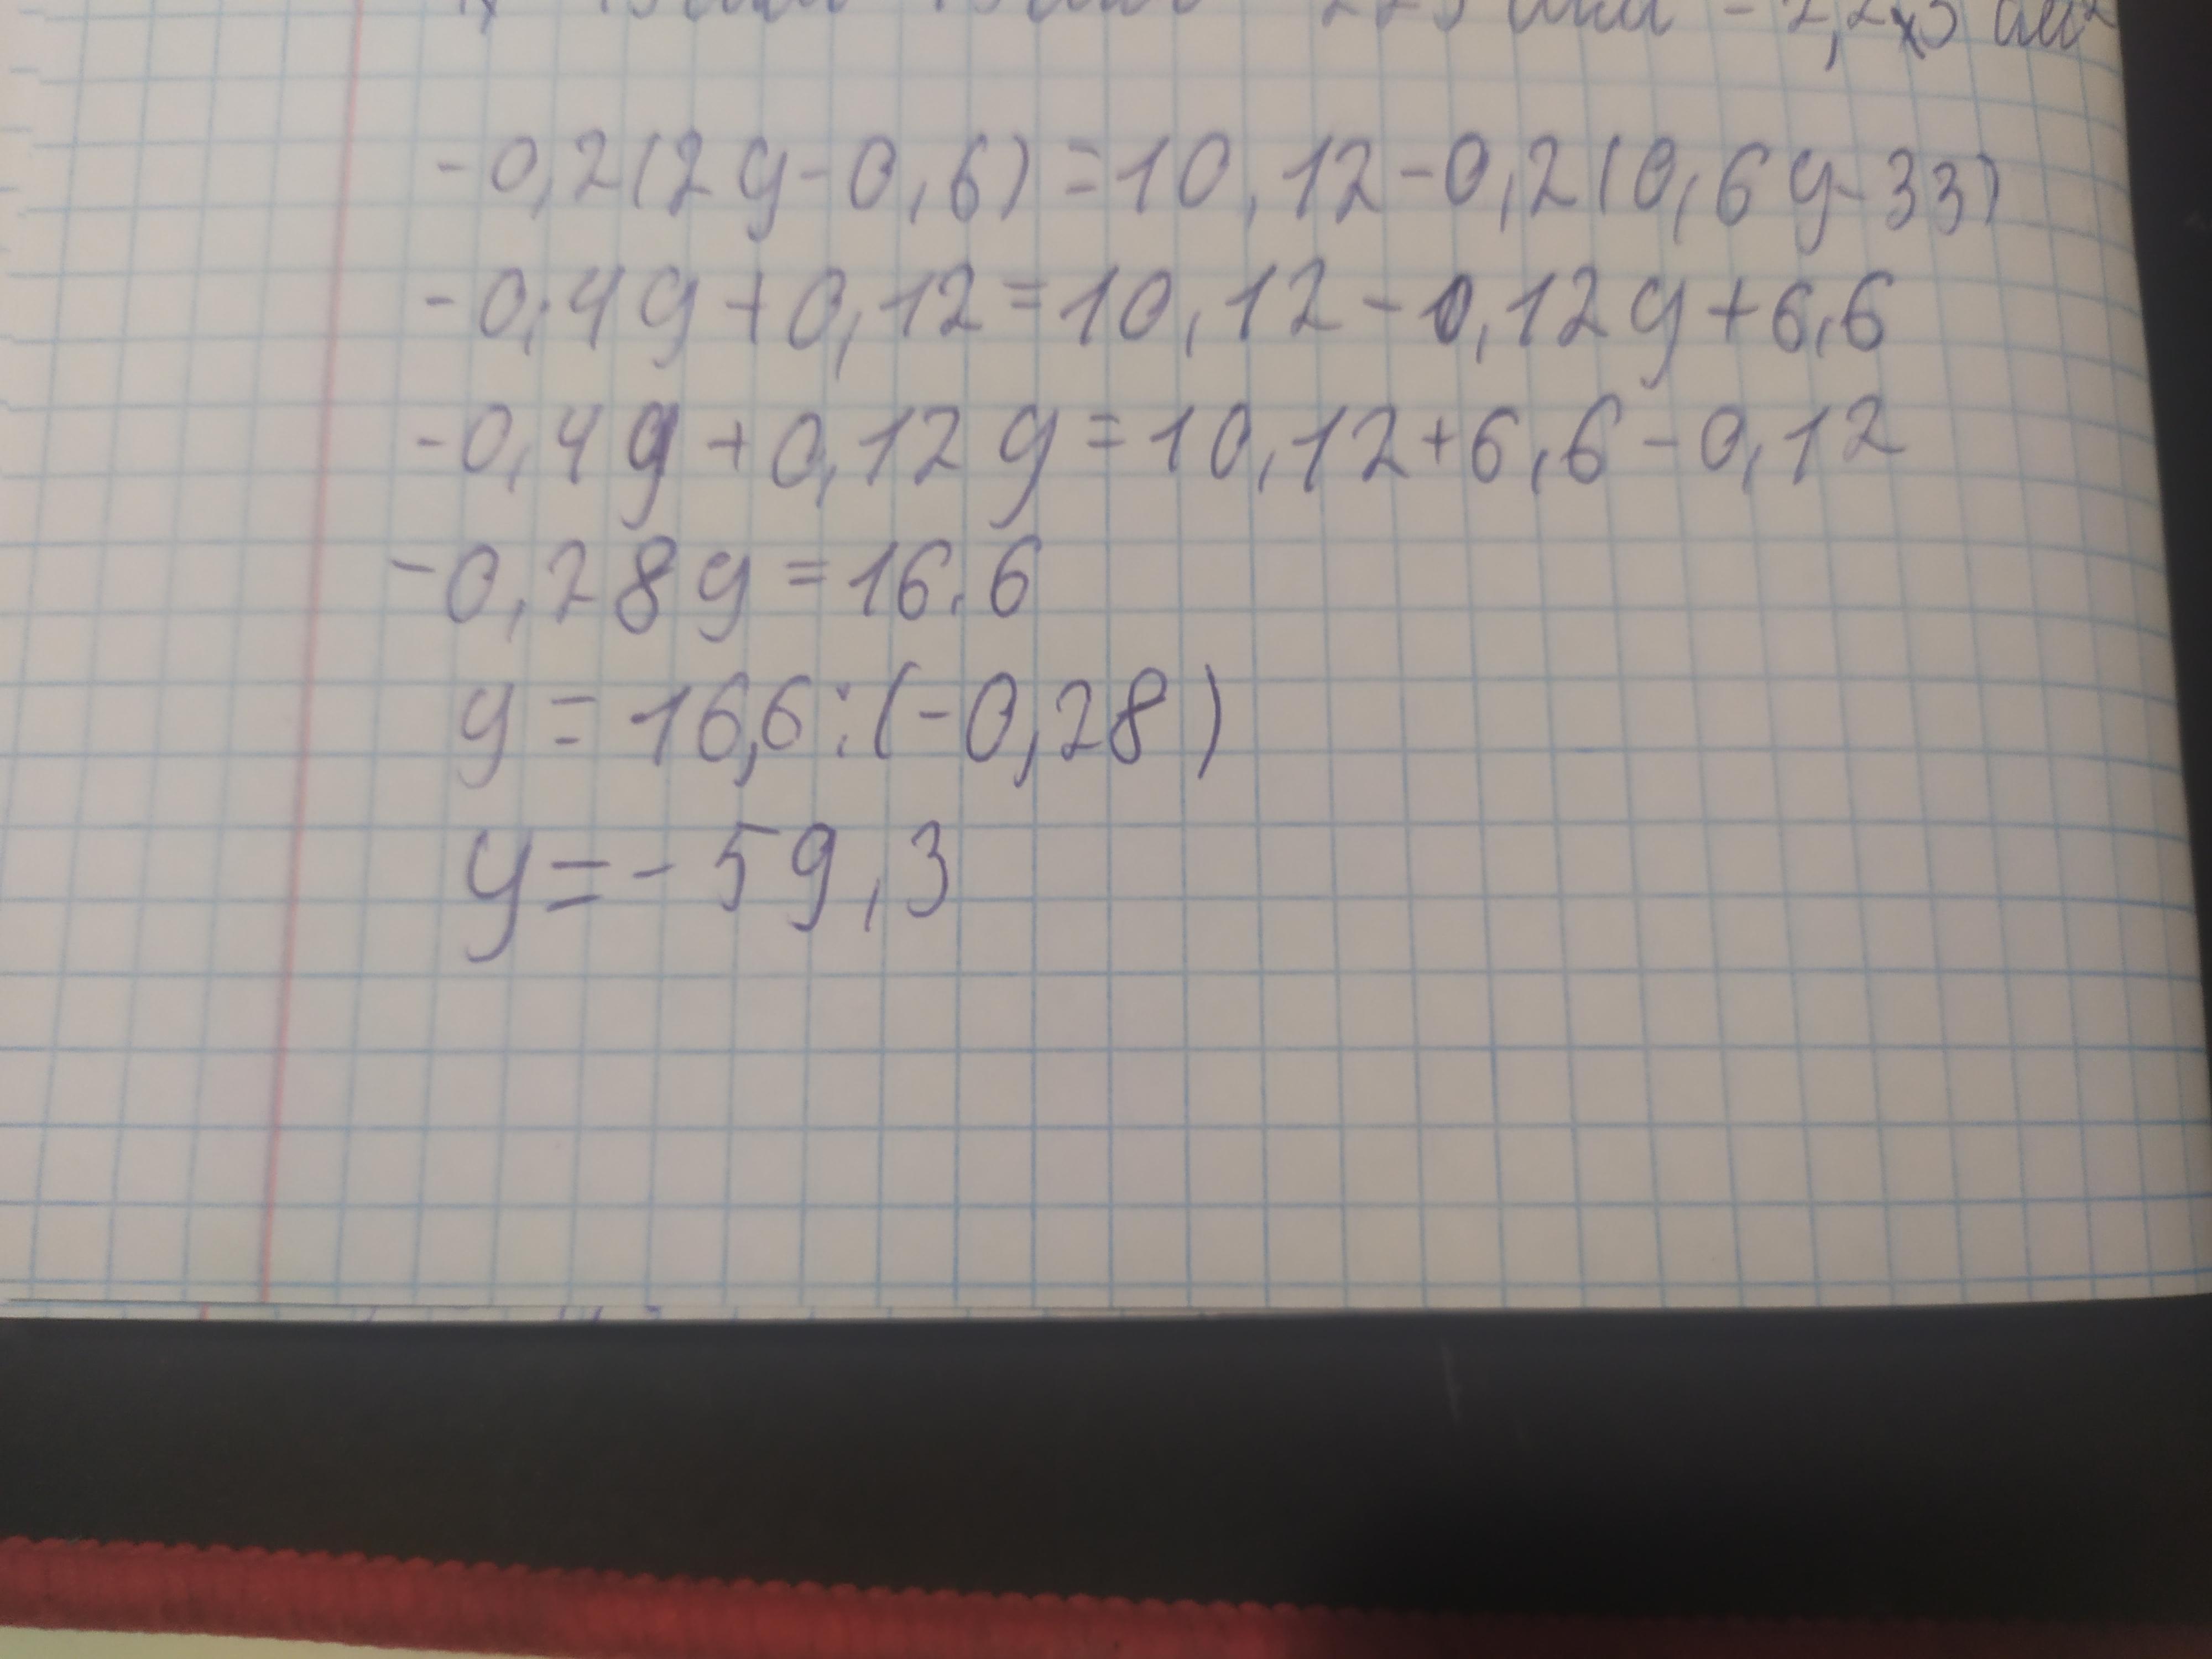 -0,2(2y-0,6)=10,12-0,2(0,6y-33)
-0,4y+0,12=10,12-0,12y+6,6
-0,4y+0,12y=10,12+6,6-0,12
-0,28y=16.6
y=16,6:(-0,28)
y=-59,3